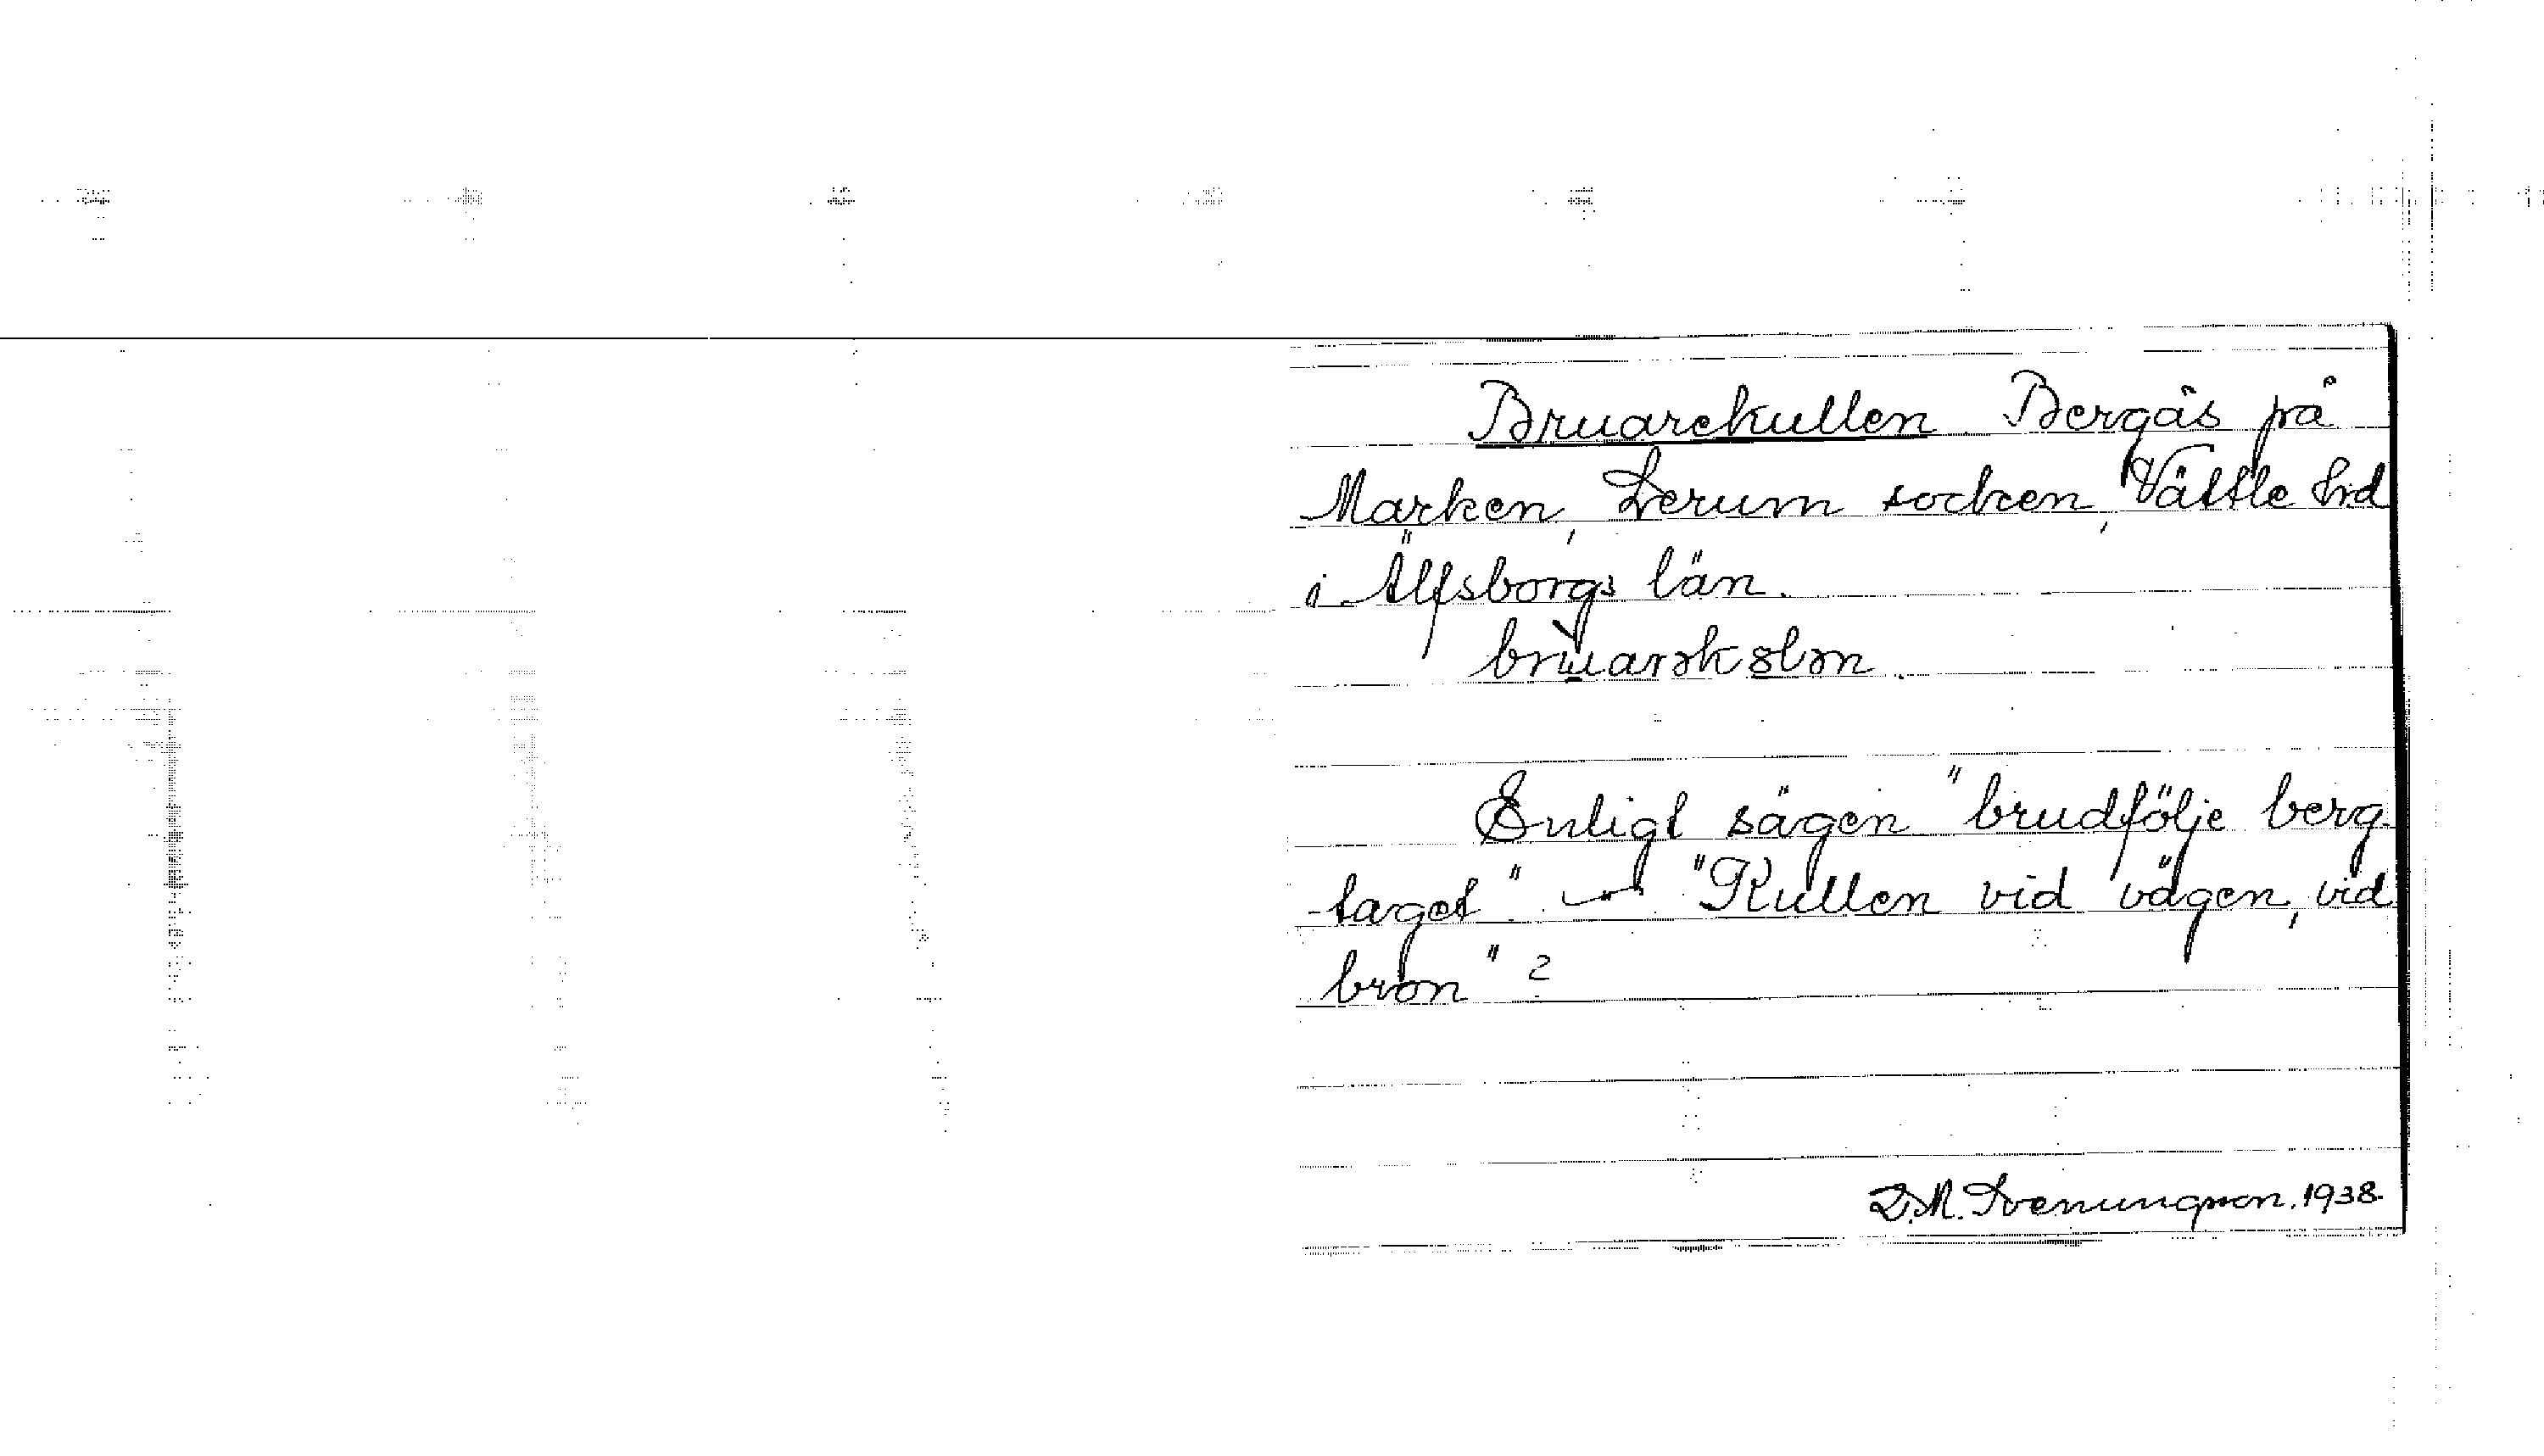 Bruarekullen. Bergås på
Marken, Lerum socken, Vättle hrd
i Älfsborgs län.
brùarəkɵlən.
Enligt sägen "brudfölje berg-
taget". — "Kullen vid vägen, vid
bron"?
D.M. Svenungsson. 1938.